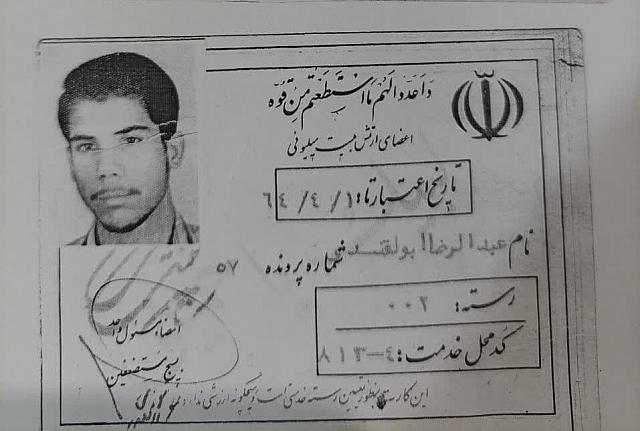 وَاَعِدّوا لَهُم مَا استَطَعتُم مِن قُوَّه
اعضای ارتش بیست میلیونی
تاریخ اعتبار تا: ۶۴/۴/۱
نام عبدالرضا ابولقت
شماره پرونده ۵۷
رسته: ۰۰۲
کد محل خدمت: ۸۱۳-۴
امضاء مسئول واحد
بسیج مستضعفین
این کارت بمنظور تعیین رسته خدمتی است و هیچگونه ارزشی ندارد